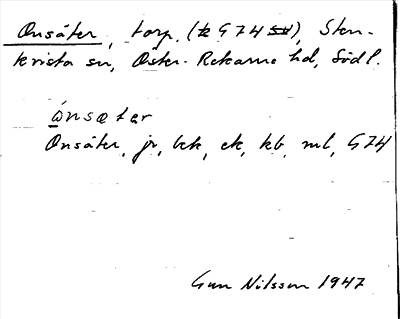 Onsäter, torp, (k G74 sv), Sten-
kvista sn, Öster-Rekarne hd, Södl.
ónsætər
Onsäter, jr, bek, ek, kb, ml, G74
Gun Nilsson 1947